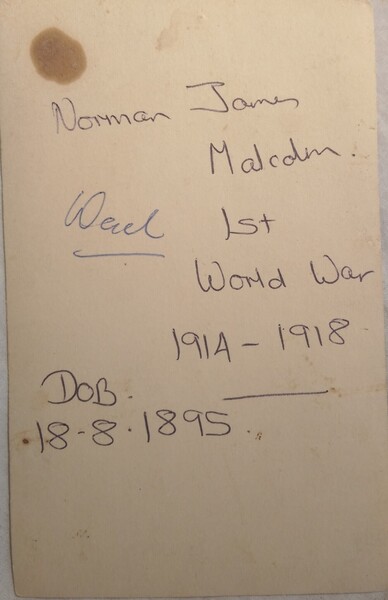 Norman James
Malcolm.
1st
World War
1914 - 1918
DOB.
18-8-1895.